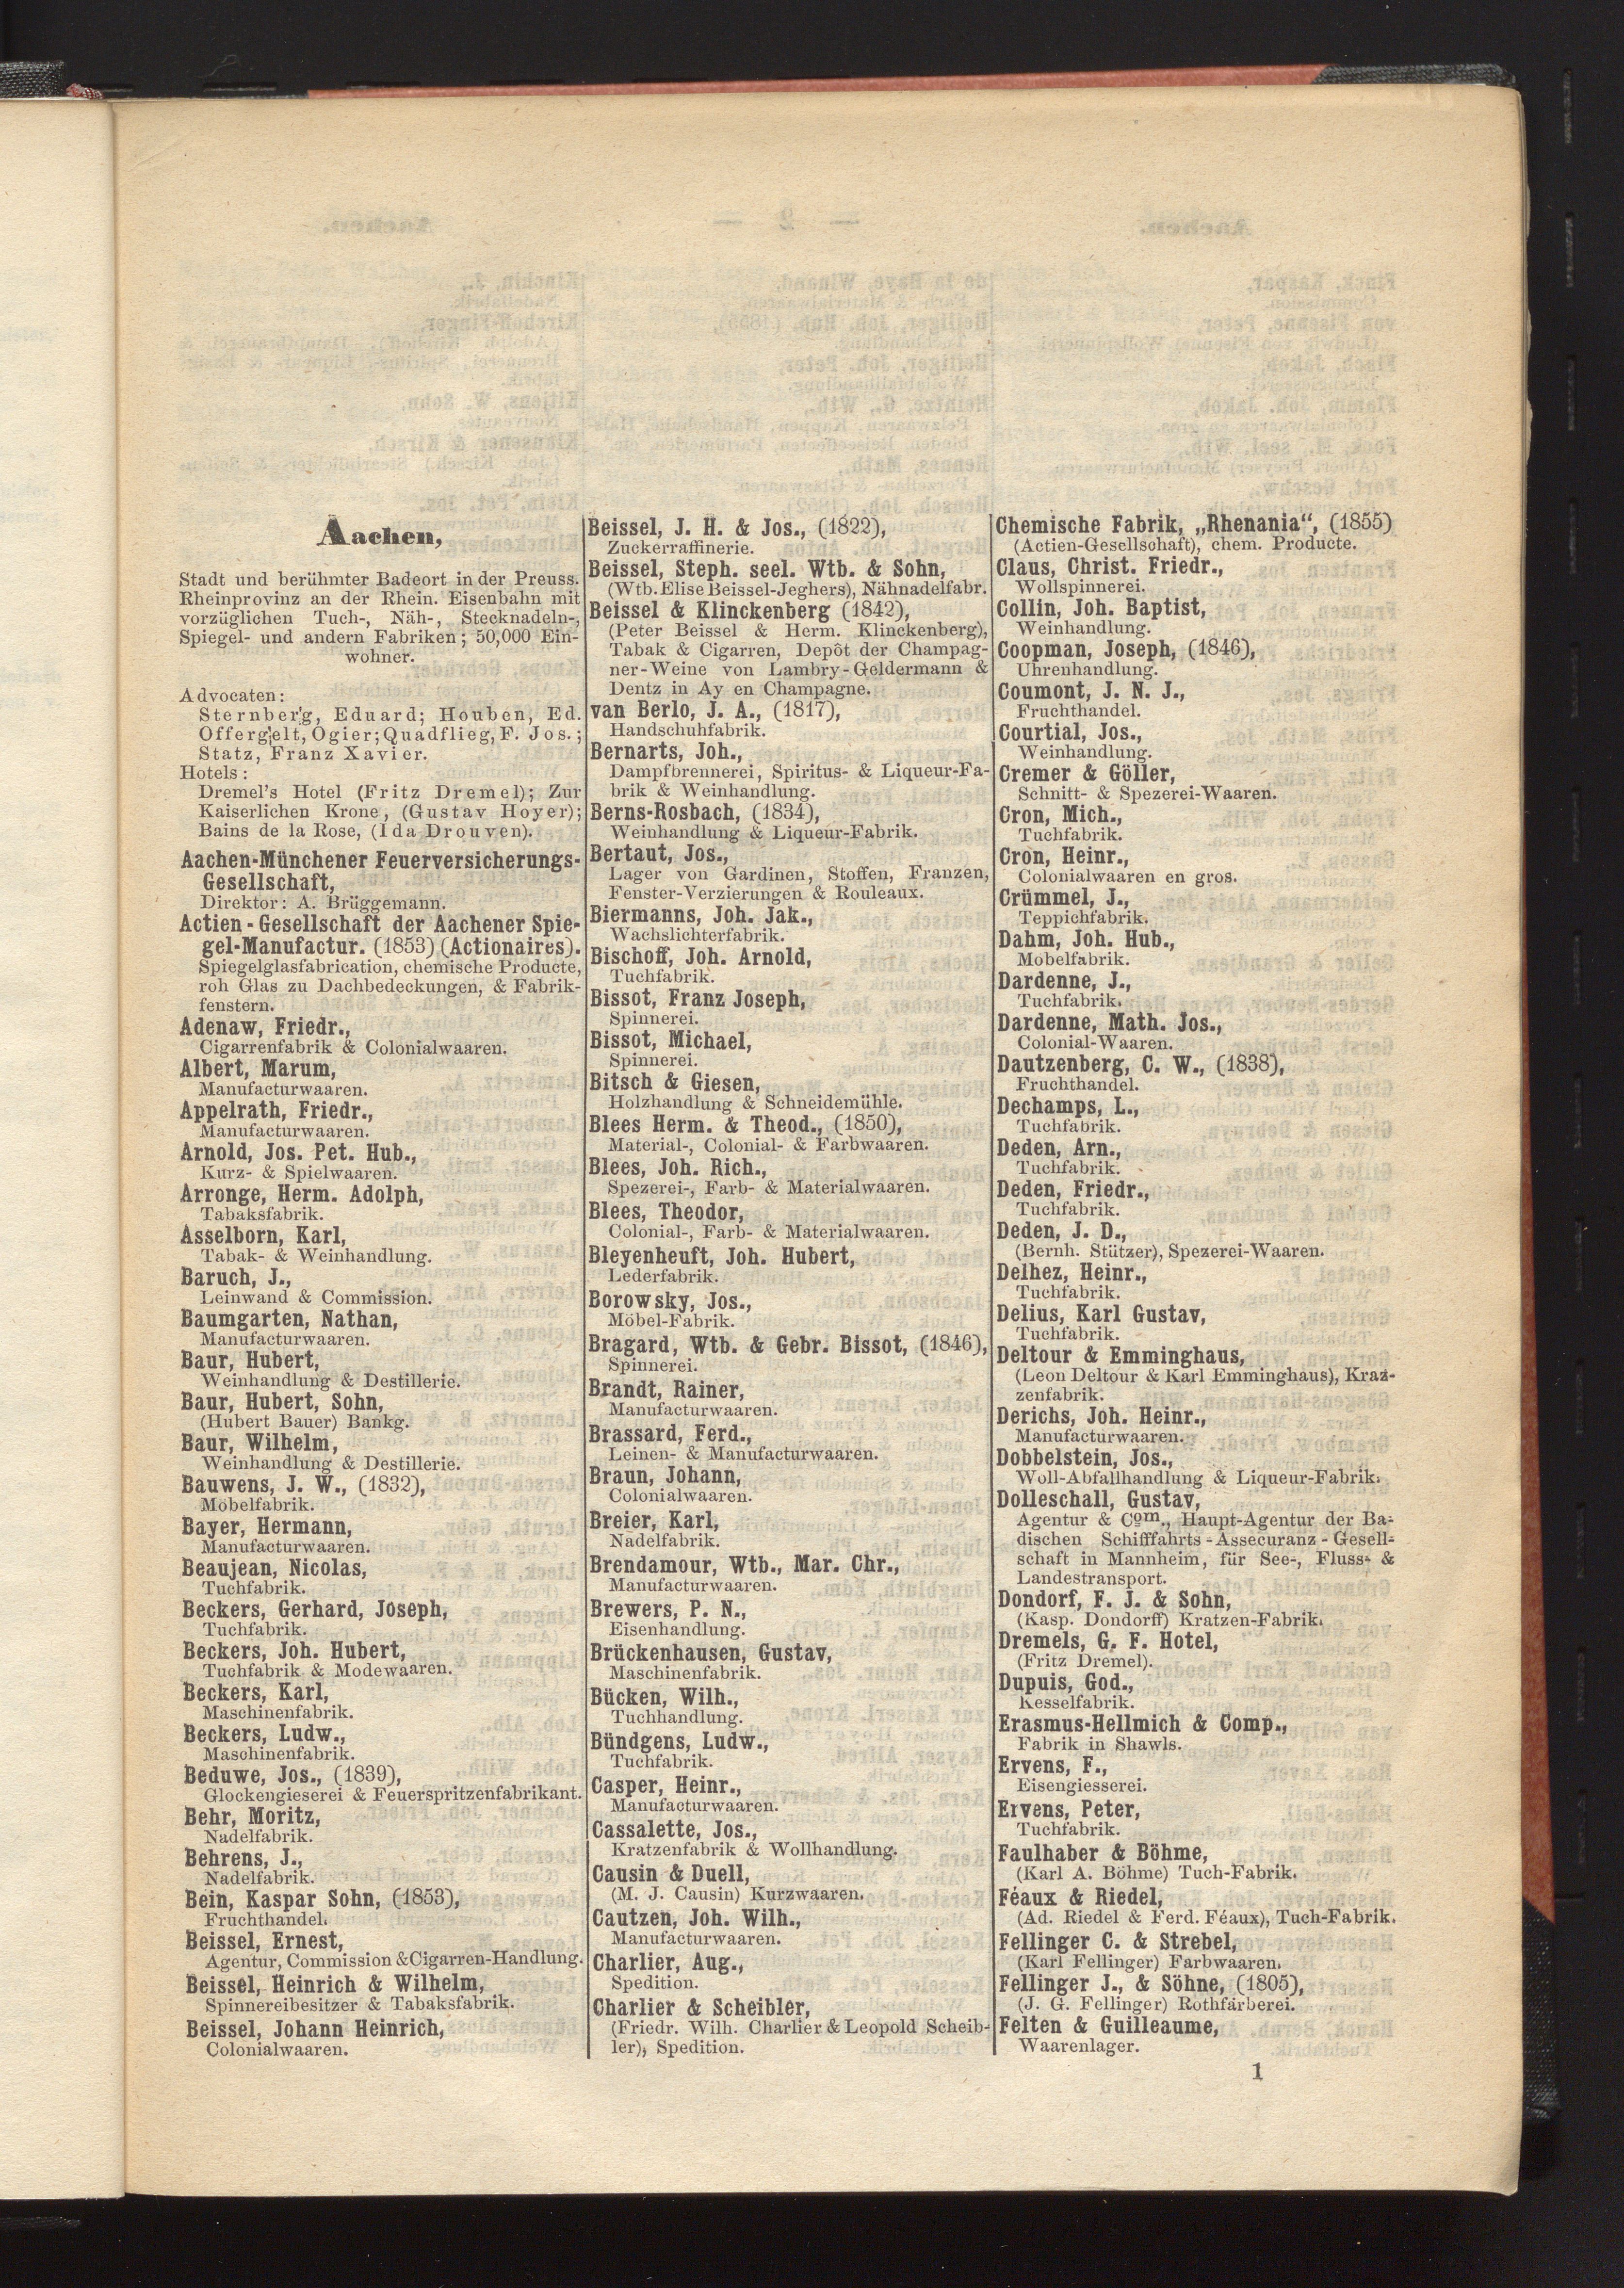 Aachen,
Stadt und berühmter Badeort in der Preuss.
Rheinprovinz an der Rhein. Eisenbahn mit
vorzüglichen Tuch-, Näh-, Stecknadeln-,
Spiegel- und andern Fabriken; 50,000 Ein-
wohner.
Advocaten:
Sternberg, Eduard; Houben, Ed.
Offergelt, Ogier; Quadflieg, F. Jos.;
Statz, Franz Xavier.
Hotels:
Dremel's Hotel (Fritz Dremel); Zur
Kaiserlichen Krone, (Gustav Hoyer);
Bains de la Rose, (Ida Drouven).
Aachen-Münchener Feuerversicherungs-
Gesellschaft,
Direktor: A. Brüggemann.
Actien-Gesellschaft der Aachener Spie-
gel-Manufactur. (1853) (Actionaires).
Spiegelglasfabrication, chemische Producte,
roh Glas zu Dachbedeckungen, & Fabrik-
fenstern.
Adenaw, Friedr.,
Cigarrenfabrik & Colonialwaaren.
Albert, Marum,
Manufacturwaaren.
Appelrath, Friedr.,
Manufacturwaaren.
Arnold, Jos. Pet. Hub.,
Kurz- & Spielwaaren.
Arronge, Herm. Adolph,
Tabaksfabrik.
Asselborn, Karl,
Tabak- & Weinhandlung.
Baruch, J.,
Leinwand & Commission.
Baumgarten, Nathan,
Manufacturwaaren.
Baur, Hubert,
Weinhandlung & Destillerie.
Baur, Hubert, Sohn,
(Hubert Bauer) Bankg.
Baur, Wilhelm,
Weinhandlung & Destillerie.
Bauwens, J. W., (1832),
Möbelfabrik.
Bayer, Hermann,
Manufacturwaaren.
Beaujean, Nicolas,
Tuchfabrik.
Beckers, Gerhard, Joseph,
Tuchfabrik.
Beckers, Joh. Hubert,
Tuchfabrik & Modewaaren.
Beckers, Karl,
Maschinenfabrik.
Beckers, Ludw.,
Maschinenfabrik.
Beduwe, Jos., (1839),
Glockengieserei & Feuerspritzenfabrikant.
Behr, Moritz,
Nadelfabrik.
Behrens, J.,
Nadelfabrik.
Bein, Kaspar Sohn, (1853),
Fruchthandel.
Beissel, Ernest,
Agentur, Commission & Cigarren-Handlung.
Beissel, Heinrich & Wilhelm,
Spinnereibesitzer & Tabaksfabrik.
Beissel, Johann Heinrich,
Colonialwaaren.
Beissel, J. H. & Jos., (1822),
Zuckerraffinerie.
Beissel, Steph. seel. Wtb. & Sohn,
(Wtb. Elise Beissel-Jeghers), Nähnadelfabr.
Beissel & Klinckenberg (1842),
(Peter Beissel & Herm. Klinckenberg),
Tabak & Cigarren, Depôt der Champag-
ner-Weine von Lambry-Geldermann &
Dentz in Ay en Champagne.
van Berlo, J. A., (1817),
Handschuhfabrik.
Bernarts, Joh.,
Dampfbrennerei, Spiritus- & Liqueur-Fa-
brik & Weinhandlung.
Berns-Rosbach, (1834),
Weinhandlung & Liqueur-Fabrik.
Bertaut, Jos.,
Lager von Gardinen, Stoffen, Franzen,
Fenster-Verzierungen & Rouleaux.
Biermanns, Joh. Jak.,
Wachslichterfabrik.
Bischoff, Joh. Arnold,
Tuchfabrik.
Bissot, Franz Joseph,
Spinnerei.
Bissot, Michael,
Spinnerei.
Bitsch & Giesen,
Holzhandlung & Schneidemühle.
Blees Herm. & Theod., (1850),
Material-, Colonial- & Farbwaaren.
Blees, Joh. Rich.,
Spezerei-, Farb- & Materialwaaren.
Blees, Theodor,
Colonial-, Farb- & Materialwaaren.
Bleyenheuft, Joh. Hubert,
Lederfabrik.
Borowsky, Jos.,
Möbel-Fabrik.
Bragard, Wtb. & Gebr. Bissot, (1846),
Spinnerei.
Brandt, Rainer,
Manufacturwaaren.
Brassard, Ferd.,
Leinen- & Manufacturwaaren.
Braun, Johann,
Colonialwaaren.
Breier, Karl,
Nadelfabrik.
Brendamour, Wtb., Mar. Chr.,
Manufacturwaaren.
Brewers, P. N.,
Eisenhandlung.
Brückenhausen, Gustav,
Maschinenfabrik.
Bücken, Wilh.,
Tuchhandlung.
Bündgens, Ludw.,
Tuchfabrik.
Casper, Heinr.,
Manufacturwaaren.
Cassalette, Jos.,
Kratzenfabrik & Wollhandlung.
Causin & Duell,
(M. J. Causin) Kurzwaaren.
Cautzen, Joh. Wilh.,
Manufacturwaaren.
Charlier, Aug.,
Spedition.
Charlier & Scheibler,
(Friedr. Wilh. Charlier & Leopold Scheib-
ler), Spedition.
Chemische Fabrik, „Rhenania“, (1855)
(Actien-Gesellschaft), chem. Producte.
Claus, Christ. Friedr.,
Wollspinnerei.
Collin, Joh. Baptist,
Weinhandlung.
Coopman, Joseph, (1846),
Uhrenhandlung.
Coumont, J. N. J.,
Fruchthandel.
Courtial, Jos.,
Weinhandlung.
Cremer & Göller,
Schnitt- & Spezerei-Waaren.
Cron, Mich.,
Tuchfabrik.
Cron, Heinr.,
Colonialwaaren en gros.
Crümmel, J.,
Teppichfabrik.
Dahm, Joh. Hub.,
Möbelfabrik.
Dardenne, J.,
Tuchfabrik.
Dardenne, Math. Jos.,
Colonial-Waaren.
Dautzenberg, C. W., (1838),
Fruchthandel.
Dechamps, L.,
Tuchfabrik.
Deden, Arn.,
Tuchfabrik.
Deden, Friedr.,
Tuchfabrik.
Deden, J. D.,
(Bernh. Stützer), Spezerei-Waaren.
Delhez, Heinr.,
Tuchfabrik.
Delius, Karl Gustav,
Tuchfabrik.
Deltour & Emminghaus,
(Leon Deltour & Karl Emminghaus), Krat-
zenfabrik.
Derichs, Joh. Heinr.,
Manufacturwaaren.
Dobbelstein, Jos.,
Woll-Abfallhandlung & Liqueur-Fabrik.
Dolleschall, Gustav,
Agentur & Com., Haupt-Agentur der Ba-
dischen Schifffahrts-Assecuranz-Gesell-
schaft in Mannheim, für See-, Fluss- &
Landestransport.
Dondorf, F. J. & Sohn,
(Kasp. Dondorff) Kratzen-Fabrik.
Dremels, G. F. Hotel,
(Fritz Dremel).
Dupuis, God.,
Kesselfabrik.
Erasmus-Hellmich & Comp.,
Fabrik in Shawls.
Ervens, F.,
Eisengiesserei.
Ervens, Peter,
Tuchfabrik.
Faulhaber & Böhme,
(Karl A. Böhme) Tuch-Fabrik.
Féaux & Riedel,
(Ad. Riedel & Ferd. Féaux), Tuch-Fabrik.
Fellinger C. & Strebel,
(Karl Fellinger) Farbwaaren.
Fellinger J., & Söhne, (1805),
(J. G. Fellinger) Rothfärberei.
Felten & Guilleaume,
Waarenlager.
1